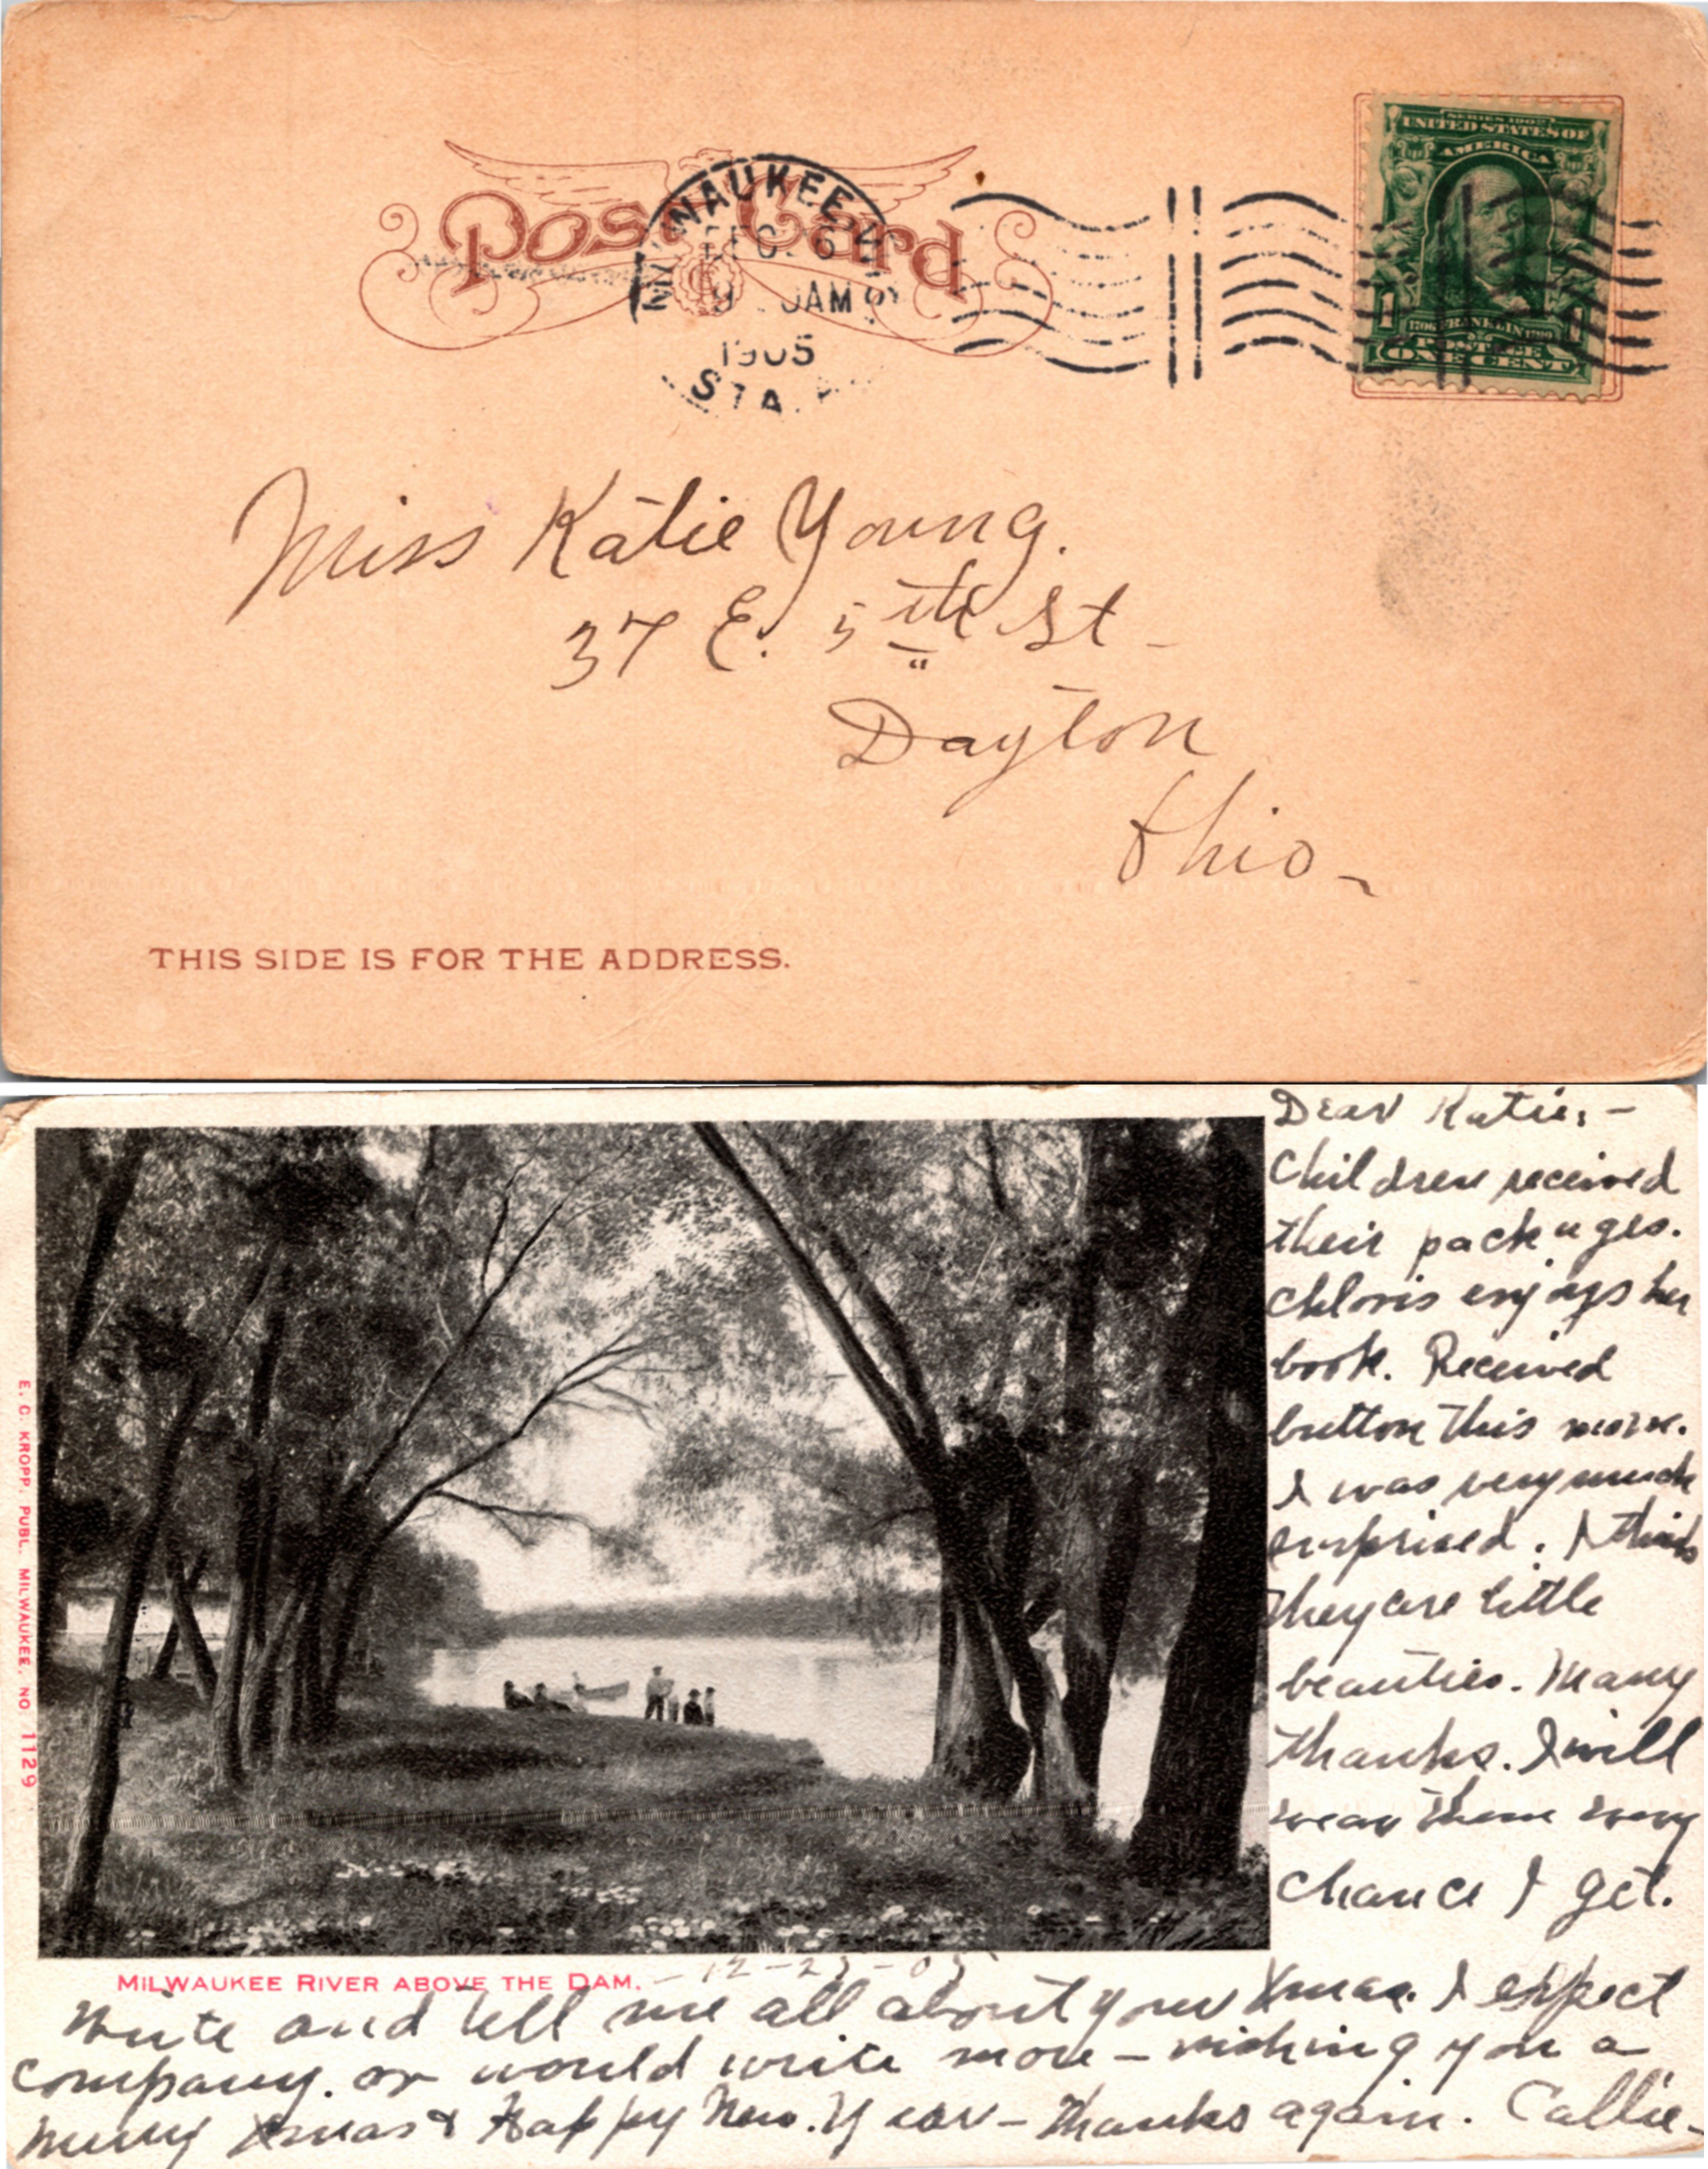 Post Card
MILWAUKEE
DEC 26
AM
1905
STA.
SERIES 1902
UNITED STATES OF
AMERICA
1706 FRANKLIN 1790
POSTAGE
1 1
ONE CENT
Miss Katie Young.
37 E. 5th St -
Dayton
Ohio -
THIS SIDE IS FOR THE ADDRESS.
Dear Katie, -
Children received
their packages.
Chloris enjoys her
book. Received
button this morn.
I was very much
surprised. I think
they are little
beauties. Many
thanks. I will
wear them every
chance I get.
E. C. KROPP, PUBL. MILWAUKEE. NO. 1129
MILWAUKEE RIVER ABOVE THE DAM. - 12-25-05
Write and tell me all about your Xmas. I expect
company. or would write more - wishing you a
merry Xmas & Happy New. Year - Thanks again. Callie -